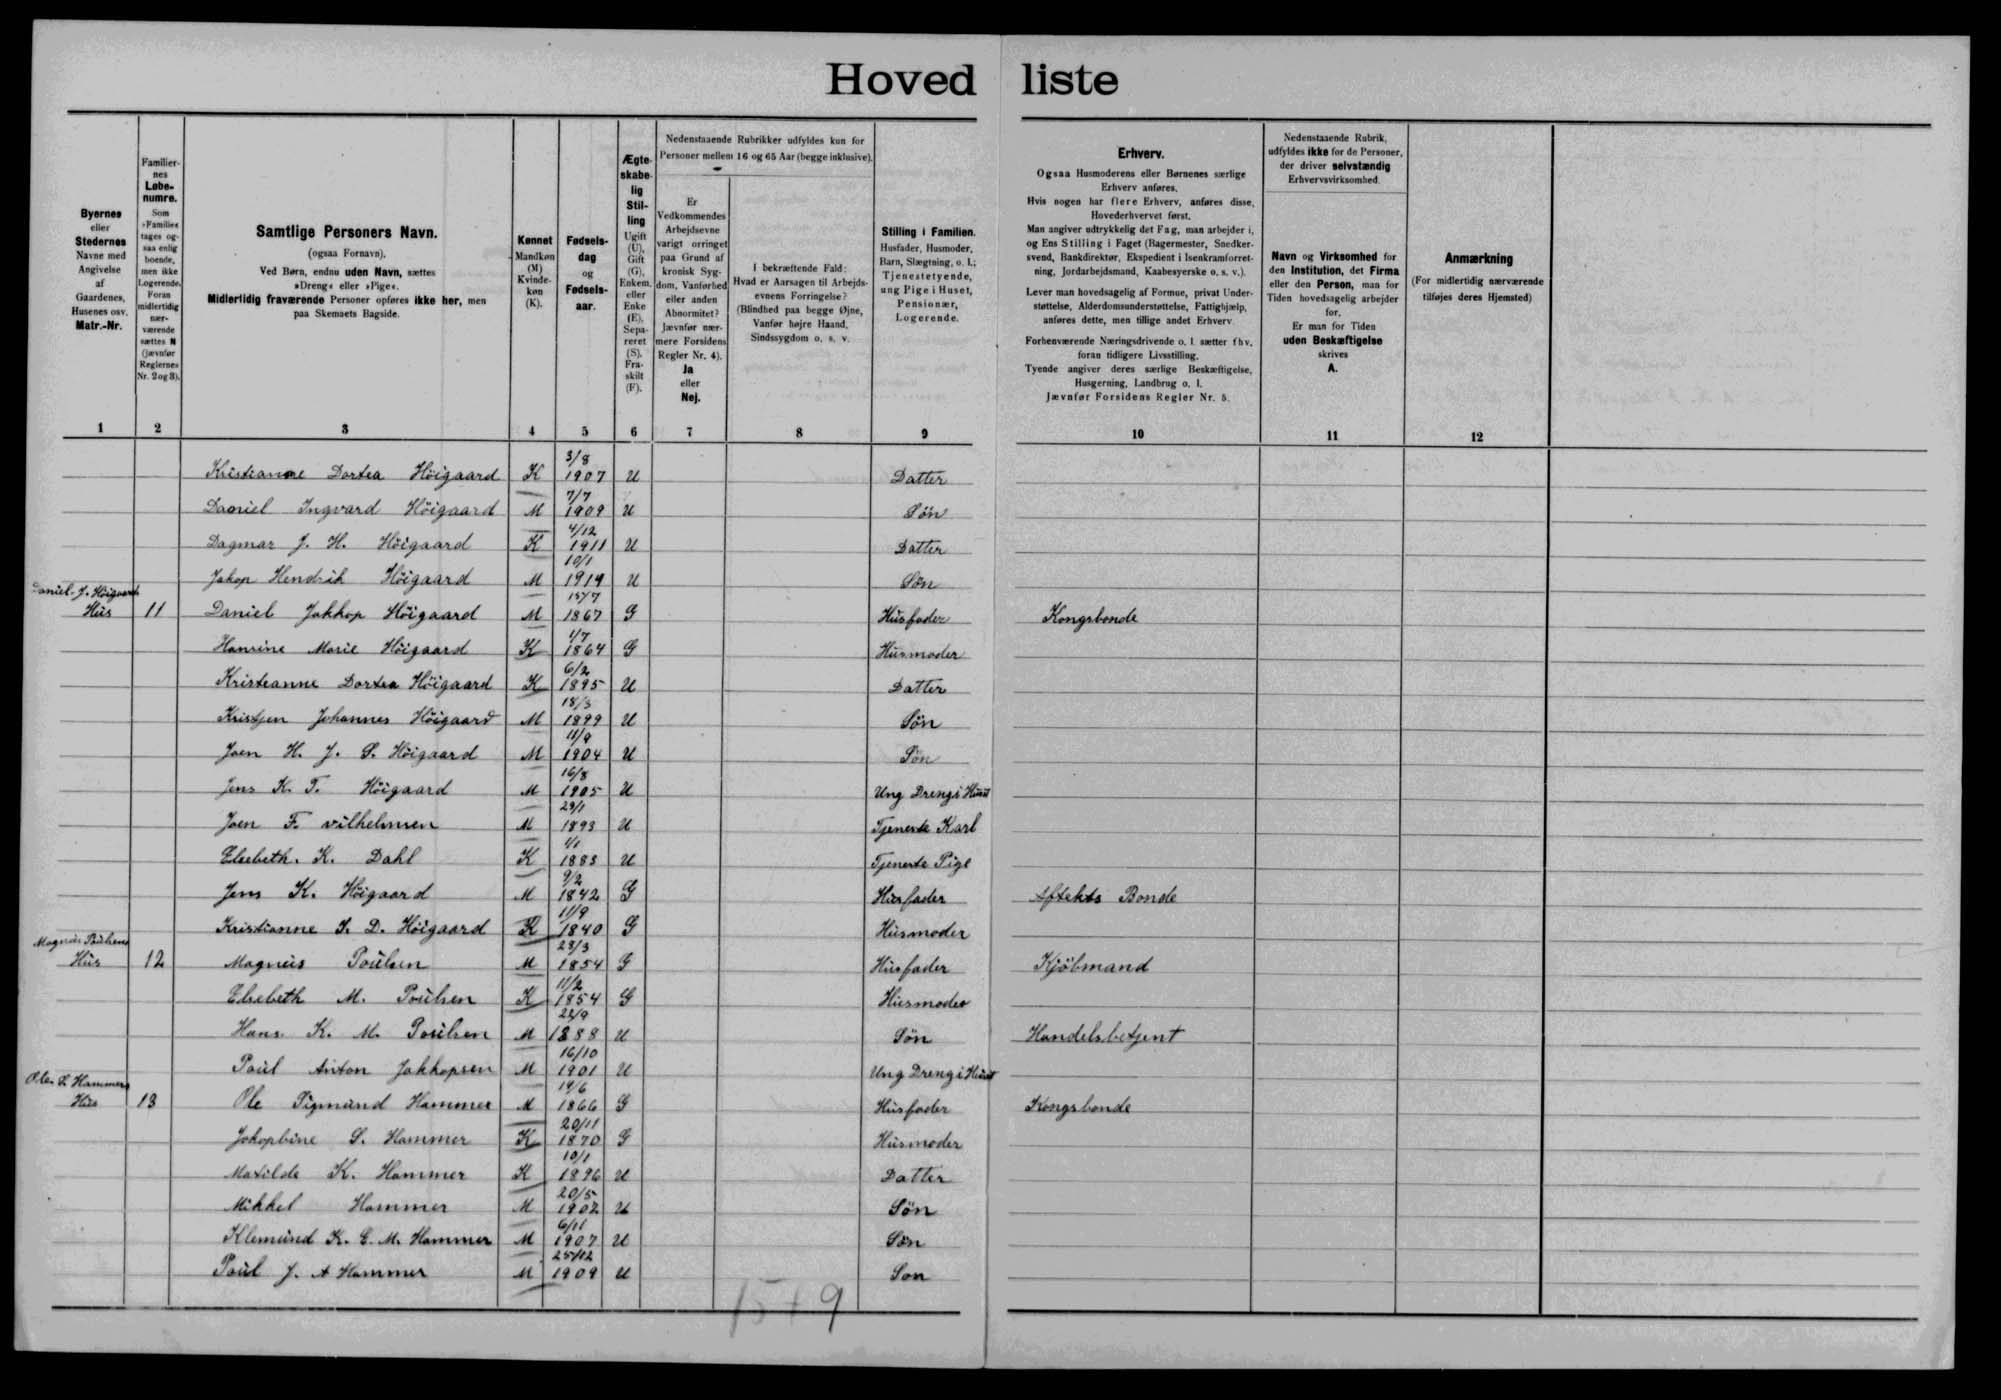 Hovedliste
Byernes eller Stedernes Navne med Angivelse af Gaardenes, Husenes osv. Matr.-Nr.
Familiernes Løbenumre. Som »Familie« tages ogsaa enlig boende, men ikke Logerende. Foran midlertidig nærværende sættes N (Jævnfør Reglernes Nr. 2 og 3).
Samtlige Personers Navn. (ogsaa Fornavn). Ved Børn, endnu uden Navn, sættes »Dreng« eller »Pige«. Midlertidig fraværende Personer opføres ikke her, men paa Skemaets Bagside.
Kønnet Mandkøn (M) Kvindekøn (K).
Fødselsdag og Fødselsaar.
Ægteskabelig Stilling Ugift (U), Gift (G), Enkem. eller Enke (E), Separeret (S), Fraskilt (F).
Nedenstaaende Rubrikker udfyldes kun for Personer mellem 16 og 65 Aar (begge inklusive).
Er Vedkommendes Arbejdsevne varigt forringet paa Grund af kronisk Sygdom, Vanførhed eller anden Abnormitet? Jævnfør nærmere Forsidens Regler Nr. 4). Ja eller Nej.
I bekræftende Fald: Hvad er Aarsagen til Arbejdsevnens Forringelse? (Blindhed paa begge Øjne, Vanfør højre Haand, Sindssygdom o. s. v.
Stilling i Familien. Husfader, Husmoder, Barn, Slægtning, o. l.; Tjenestetyende, ung Pige i Huset, Pensionær, Logerende.
Erhverv.
Ogsaa Husmoderens eller Børnenes særlige Erhverv anføres.
Hvis nogen har flere Erhverv, anføres disse, Hovederhvervet først.
Man angiver udtrykkelig det Fag, man arbejder i, og Ens Stilling i Faget (Bagermester, Snedkersvend, Bankdirektør, Ekspedient i Isenkramforretning, Jordarbejdsmand, Kaabesyerske o. s. v.).
Lever man hovedsagelig af Formue, privat Understøttelse, Alderdomsunderstøttelse, Fattighjælp, anføres dette, men tillige andet Erhverv
Forhenværende Næringsdrivende o. l. sætter fhv. foran tidligere Livsstilling.
Tyende angiver deres særlige Beskæftigelse, Husgerning, Landbrug o. l.
Jævnfør Forsidens Regler Nr. 5.
Nedenstaaende Rubrik, udfyldes ikke for de Personer, der driver selvstændig Erhvervsvirksomhed.
Navn og Virksomhed for den Institution, det Firma eller den Person, man for Tiden hovedsagelig arbejder for.
Er man for Tiden uden Beskæftigelse skrives A.
Anmærkning (For midlertidig nærværende tilføjes deres Hjemsted)
1 2 3 4 5 6 7 8 9 10 11 12
Kristianne Dortea Höigaard K 3/8 1907 U Datter
Daniel Ingvard Höigaard M 7/7 1909 U Sön
Dagmar J. H. Höigaard K 4/12 1911 U Datter
Jakop Hendrik Höigaard M 10/1 1914 U Sön
Daniel J. Höigaards
Hus 11 Daniel Jakkop Höigaard M 15/7 1867 G Husfader Kongsbonde
Hansine Marie Höigaard K 1/7 1864 G Husmoder
Kristeanne Dortea Höigaard K 6/2 1895 U Datter
Kristjen Johannes Höigaard M 18/3 1899 U Sön
Joen H. J. S. Höigaard M 11/9 1904 U Sön
Jens K. T. Höigaard M 16/8 1905 U Ung Dreng i Huset
Joen F. Vilhelmsen M 29/1 1893 U Tjeneste Karl
Elsebeth. K. Dahl K 1/1 1885 U Tjeneste Pige
Jens K. Höigaard M 9/2 1842 G Husfader Aftekts Bonde
Kristianne S. D. Höigaard K 11/9 1840 G Husmoder
Magnus Poulsens
Hus 12 Magnus Poulsen M 28/3 1854 G Husfader Kjöbmand
Elsebeth M. Poulsen K 11/2 1854 G Husmoder
Hans K. M. Poulsen M 22/9 1888 U Sön Handelsbetjent
Poul Anton Jakkopsen M 16/10 1901 U Ung Dreng i Huset
Ole S. Hammers
Hus 13 Ole Sigmund Hammer M 14/6 1866 G Husfader Kongsbonde
Jakopbine S. Hammer K 20/11 1870 G Husmoder
Matilde K. Hammer K 10/1 1896 U Datter
Mikkel Hammer M 20/5 1902 U Sön
Klemund K. G. M. Hammer M 6/11 1907 U Sön
Poul J. A Hammer M 25/12 1909 U Son
15 + 9